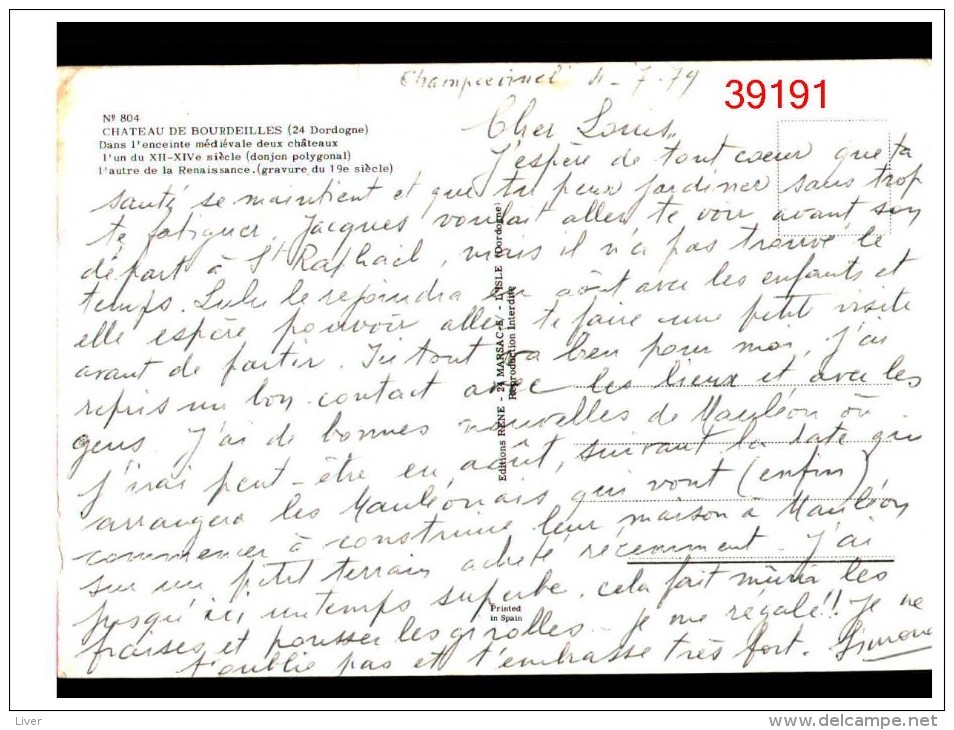 Champcevinel 4-7-79
39191
Nº 804
CHATEAU DE BOURDEILLES (24 Dordogne)
Dans l'enceinte médiévale deux châteaux
l'un du XII-XIVe siècle (donjon polygonal)
l'autre de la Renaissance. (gravure du 19e siècle)
Cher Louis,,
J'espère de tout coeur que ta
santé se maintient et que tu peux jardiner sans trop
te fatiguer. Jacques voulait aller te voir avant son
départ à St Raphaël, mais il n'a pas trouvé le
temps. Lulu le rejoindra en août avec les enfants et
elle espère pouvoir aller te faire une petite visite
avant de partir. Ici tout va bien pour moi, j'ai
repris un bon contact avec les lieux et avec les
gens. J'ai de bonnes nouvelles de Mauléon où
j'irai peut-être en août, suivant la date qui
arrangera les Mauléonais qui vont (enfin)
commencer à construire leur maison à Mauléon
sur un petit terrain acheté récemment. J'ai
jusqu'ici un temps superbe. cela fait mûrir les
fraises et pousser les girolles - je me régale!! Je ne
t'oublie pas et t'embrasse très fort. Simone
Editions RENE - 24 MARSAC-S/-L'ISLE (Dordogne)
Reproduction Interdite
Printed
in Spain
Liver
www.delcampe.net